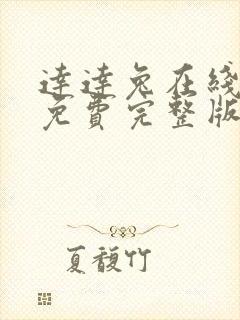 達達兔在綫
免費完整版
夏馥竹